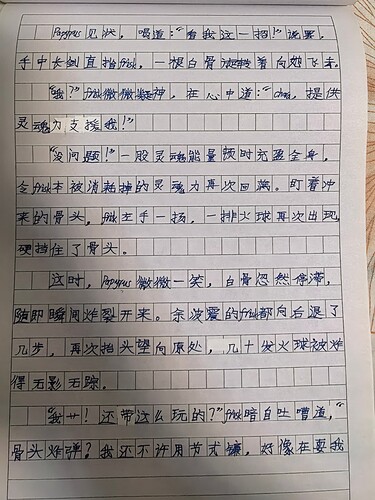 Papyrus见状，喝道：“看我这一招！”说罢，
手中长剑直指frisk，一根白骨旋转着向她飞来。
“我？”frisk微微凝神，在心中道：“chara，提供
灵魂力支援我！”
“没问题！”一股灵魂能量顿时充盈全身，
令frisk本被消耗掉的灵魂力再次回满。盯着冲
来的骨头，frisk左手一扬，一排火球再次出现，
硬挡住了骨头。
这时，Papyrus微微一笑，白骨忽然停滞，
随即瞬间炸裂开来。余波震的frisk都向后退了
几步，再次抬头望向原处，几十发火球被炸
得无影无踪。
“我艹！还带这么玩的？”frisk暗自吐嘈道，“
骨头炸弹？我还不许用方式镰，好像在耍我